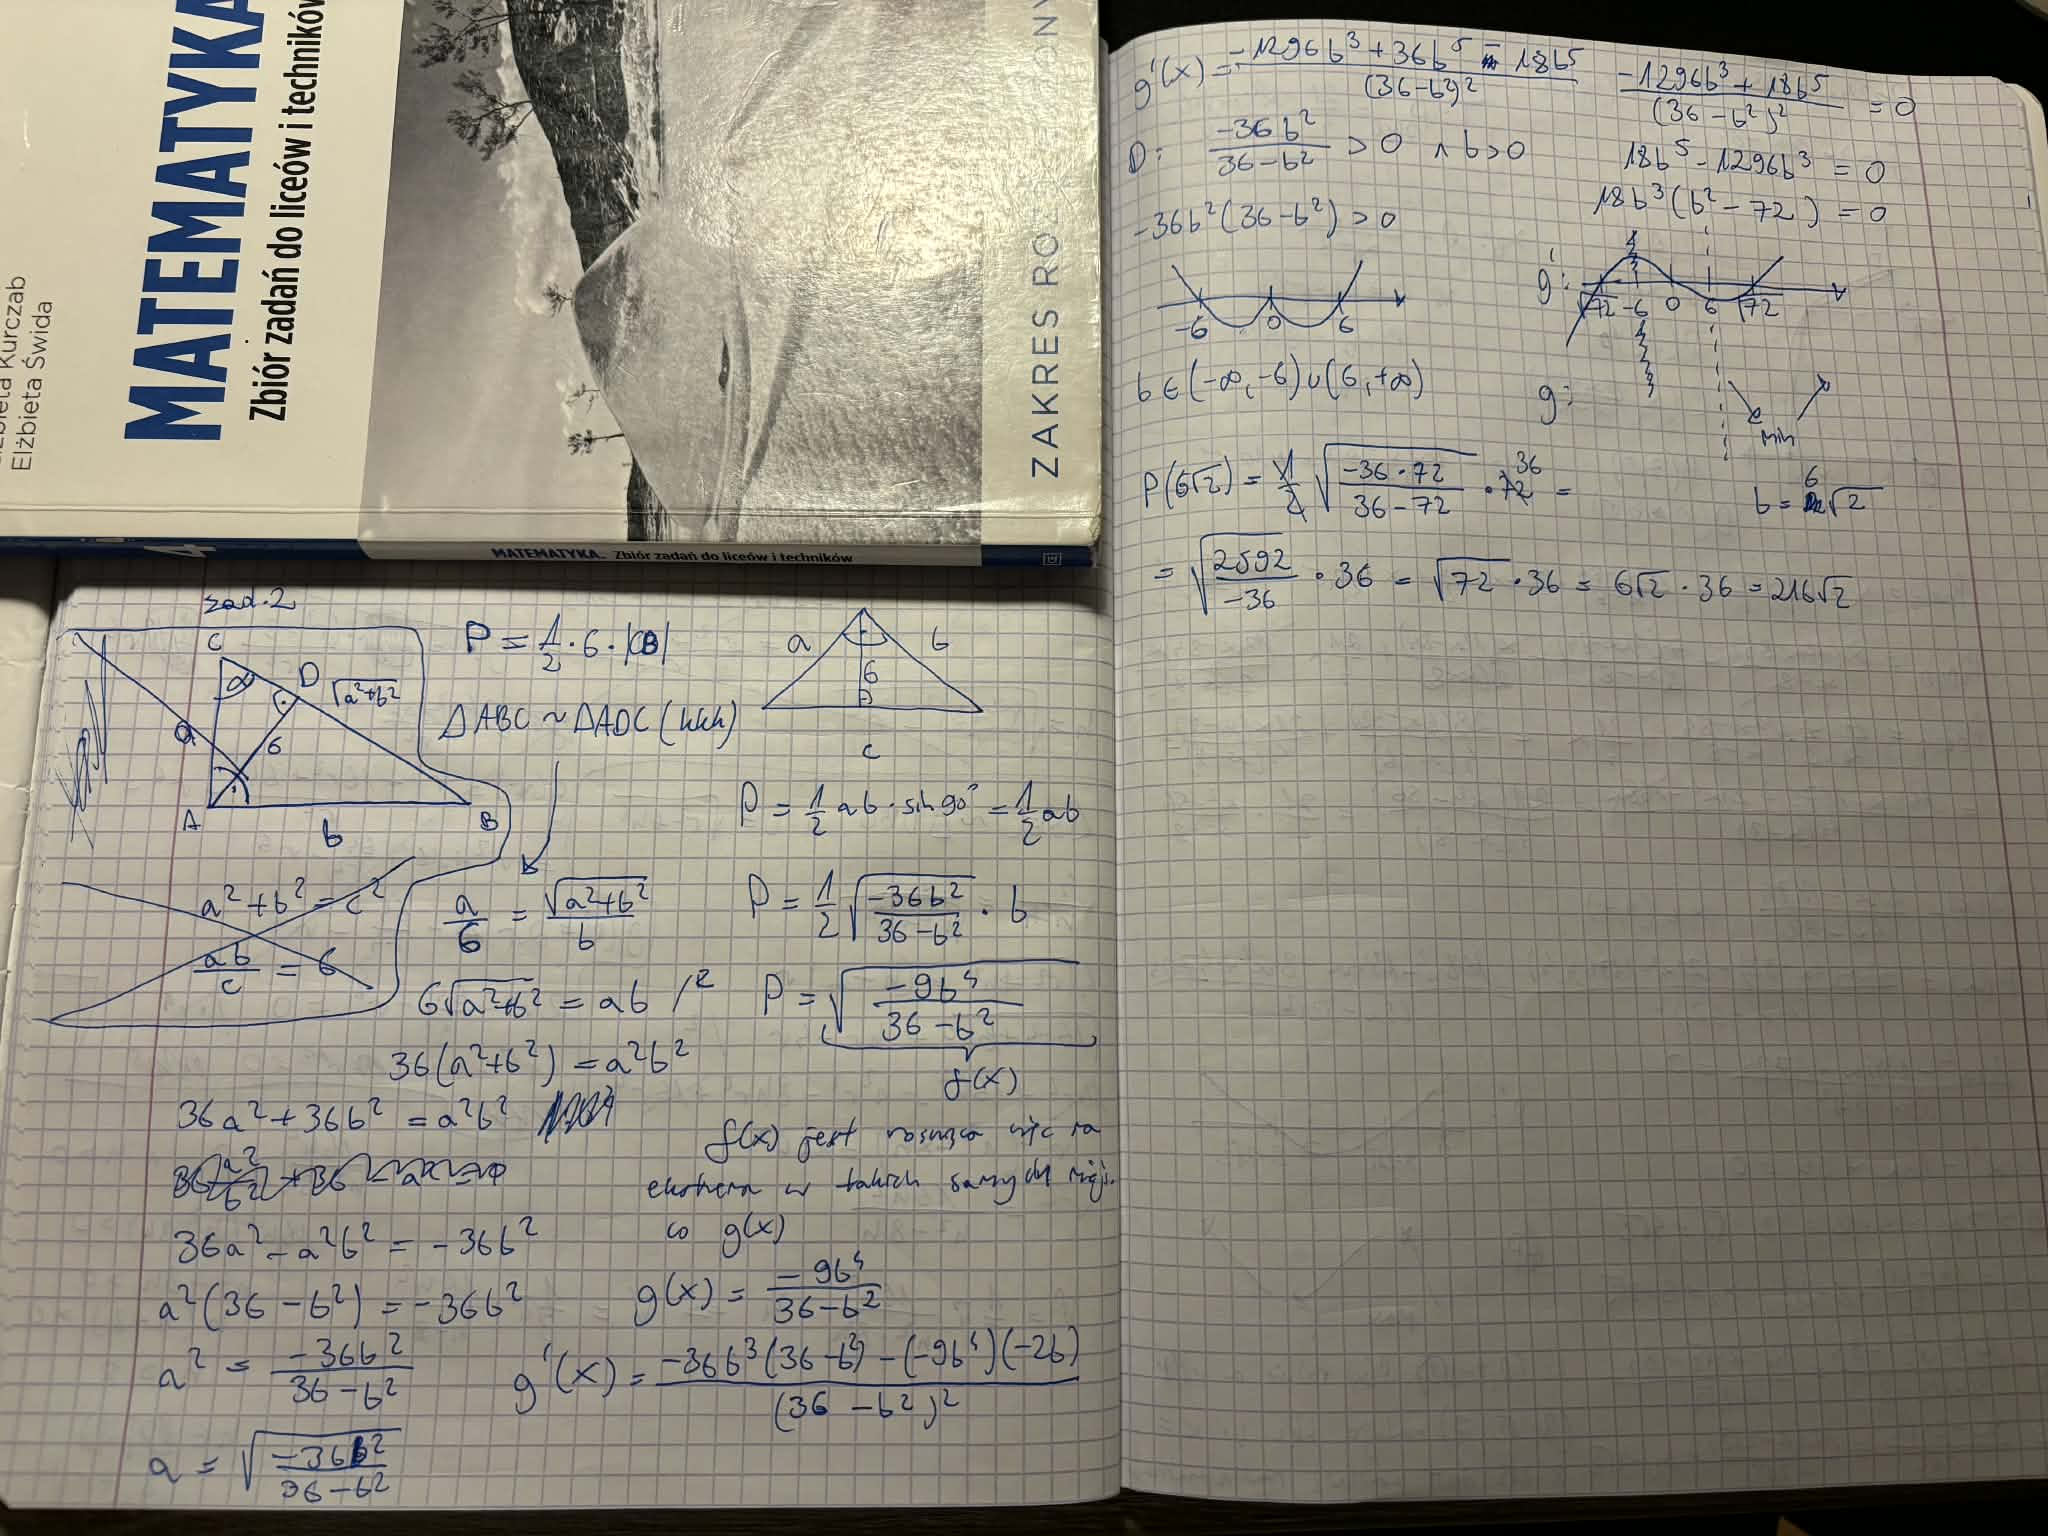 MATEMATYKA
Zbiór zadań do liceów i techników
Kurczab
Elżbieta Świda
ZAKRES
MATEMATYKA. Zbiór zadań do liceów i techników
zad.2
C
α
D
√(a²+b²)
a
6
A
b
B
a²+b² = c²
ab/c = 6
P = 1/2 · 6 · |CB|
ΔABC ~ ΔADC (kkk)
a/6 = √(a²+b²)/b
6√(a²+b²) = ab /²
36(a²+b²) = a²b²
36a² + 36b² = a²b²
36a² - a²b² = -36b²
a²(36 - b²) = -36b²
a² = -36b²/(36 - b²)
a = √(-36b²/(36 - b²))
a
b
6
c
P = 1/2 ab · sin90° = 1/2 ab
P = 1/2 √(-36b²/(36 - b²)) · b
P = √(-9b⁴/(36 - b²))
f(x)
f(x) jest rosnąca więc ma
ekstrema w takich samych miejs.
co g(x)
g(x) = -9b⁴/(36 - b²)
g'(x) = (-36b³(36 - b²) - (-9b⁴)(-2b))/(36 - b²)²
g'(x) = (-1296b³ + 36b⁵ - 18b⁵)/(36 - b²)²
(-1296b³ + 18b⁵)/(36 - b²)² = 0
D: -36b²/(36 - b²) > 0 ∧ b > 0
18b⁵ - 1296b³ = 0
-36b²(36 - b²) > 0
18b³(b² - 72) = 0
-6 0 6
g': √72 -6 0 6 √72
b ∈ (-∞, -6) ∪ (6, +∞)
g:
min
P(6√2) = 1/2 √(-36 · 72/(36 - 72)) · 72 36 =
b = 6√2
= √(2592/-36) · 36 = √72 · 36 = 6√2 · 36 = 216√2